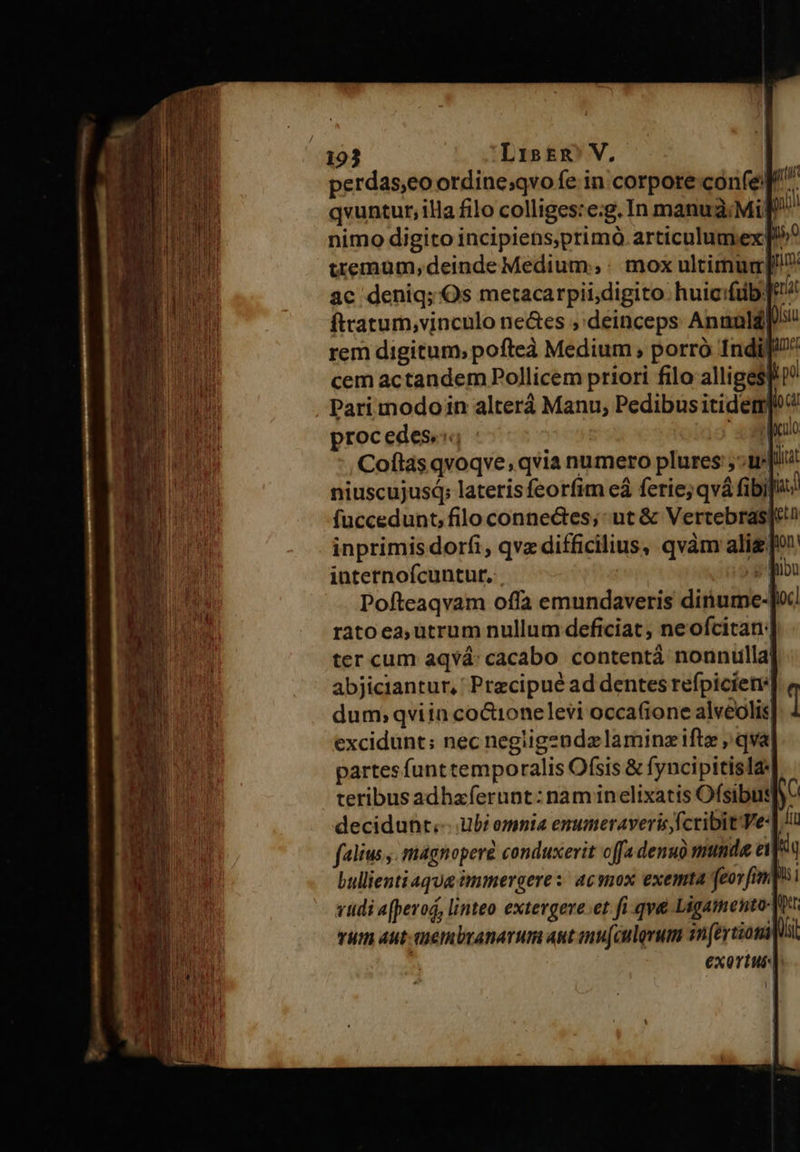 193 LIBER V.
perdas,eo ordine,qvo ſe in corpore conſe-
qvuntur, illa filo colliges: e.g. In manuâ Mi-
nimo digito incipiens,primò articulum ex-
tremum, deinde Medium, mox ultimum
ac deniq; Os metacarpii,digito huic ſub-
ſtratum,vinculo nectes, deinceps Annula-
rem digitum, poſteà Medium, porrò Indi-
cem ac tandem Pollicem priori filo alliges
Pari modo in alterâ Manu, Pedibus itidem
procedes.
Coſtas qvoqve, qvia numero plures, u-
niuscujusq́; lateris ſeorſim eâ ſerie, qvâ ſibi
ſuccedunt, filo connectes, ut & Vertebras
inprimis dorſi, qvæ difficilius, qvàm aliæ
internoſcuntur.
Poſteaqvam oſſa emundaveris dinume-
rato ea, utrum nullum deficiat, ne oſcitan-
ter cum aqvâ cacabo contentâ nonnulla
abjiciantur, Præcipuè ad dentes reſpicien-
dum, qvi in coctione levi occaſione alveolis
excidunt; nec negligendæ laminæ iſtæ, qva
partes ſunt temporalis Oſsis & ſyncipitis la-
teribus adhæſerunt: nam in elixatis Oſsibus
decidunt. Ubi omnia enumeraveris, ſcribit Ve-
ſalius, magnoperè conduxerit oſſa denuò mundæ ei
bullienti aquæ immergere: ac mox exemta ſeorſim
rudi aſperoq́; linteo extergere et ſi qvæ Ligamento-
rum aut membranarum aut muſculorum inſertioni
exortui